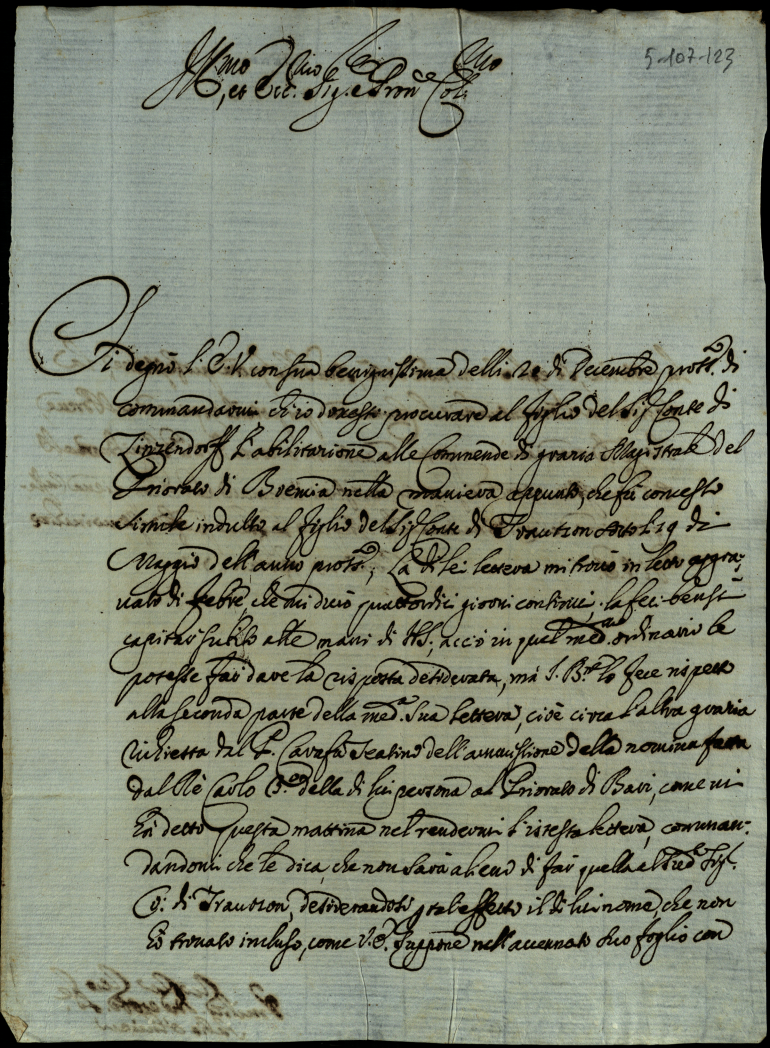 5-107-123
Ill.mo
et Ecc. Sig. e Pron Col.
Si degnò l'E.V. con sua benignissima delli 20 di Decembre pross.o di
commandarmi ch'io dovesse procurare al figlio del Sig. Conte di
Zinzendorff l'abilitazione alle Commende di grazia Magistrale del
Priorato di Boemia nella maniera appunto, che fù concesso
simile indulto al figlio del Sig. Conte di Trautson sotto li 19 di
Maggio dell'anno pross.o; La di lei lettera mi trovò in letto aggra-
vato di febre, che mi durò quattordici giorni continui; la feci bensì
capitar subito alle mani di N.S., acciò in quel med.mo ordinario le
potesse far dare la risposta desiderata, mà S. B.ne lo fece rispetto
alla seconda parte della med.a sua lettera, cioè circa l'altra grazia
richiesta dal P. Carafa Teatino dell'ammissione della nomina fatta
dal Rè Carlo 3.o della di lui persona al Priorato di Bari, come mi
hà detto questa mattina nel rendermi l'istessa lettera, comman-
dandomi che le dica, che non sarà alieno di far quella al sud.o Sig.
C. di Trautson, desiderandosi p tal effetto il di lui nome, che non
hà trovato incluso, come V.E. suppone nell'accennato suo foglio con